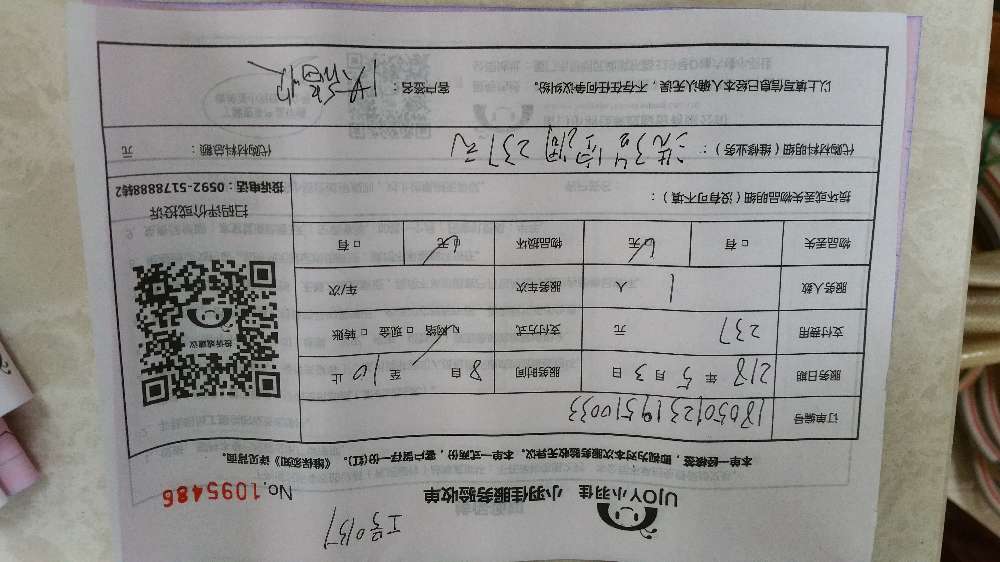 工号0137
UJOY小羽佳 小羽佳服务验收单 No.1095486
本单一经接签,即视为对本次服务验收无异议。本单一式两份,客户留存一份(红)。《维保须知》详见背面。
订单编号 18050123119510033
服务日期 218年5月3日 服务时间 8自至10止
支付费用 237元 支付方式 网络 现金 转账
服务人数 1人 服务车次 车/次
物品丢失 有 无 物品损坏 无 有
损坏或丢失物品明细(没有可不填):
投诉或建议
扫码评价或投诉
投诉电话:0592-5178888转2
代购材料明细(维修业务): 237元
代购材料总额: 元
以上填写信息已经本人确认无误,不存在任何争议纠纷。 客户签名: